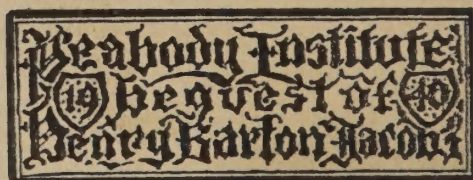 Peabody Institute
19 Beqvest of 40
Henry Barton Jacobs